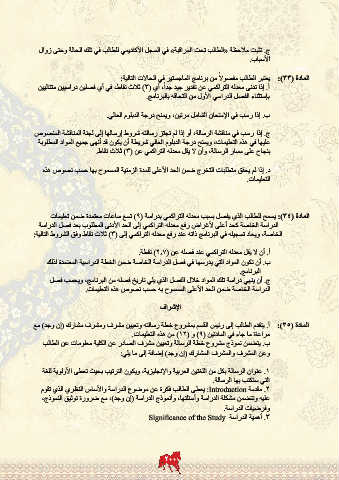 ج. تثبت ملاحظة «الطالب تحت المراقبة» في السجل الأكاديمي للطالب في تلك الحالة وحتى زوال
الأسباب.
المادة (٣٣): يعتبر الطالب مفصولاً من برنامج الماجستير في الحالات التالية:
أ. إذا تدنى معدله التراكمي عن تقدير جيد جداً، أي (٣) ثلاث نقاط، في أي فصلين دراسيين متتاليين
باستثناء الفصل الدراسي الأول من التحاقه بالبرنامج.
ب. إذا رسب في الإمتحان الشامل مرتين، ويمنح درجة الدبلوم العالي.
ج. إذا رسب في مناقشة الرسالة، أو إذا لم تجتز رسالته شروط إرسالها إلى لجنة المناقشة المنصوص
عليها في هذه التعليمات، ويمنح درجة الدبلوم العالي شريطة أن يكون قد أنهى جميع المواد المطلوبة
بنجاح على مسار الرسالة، وأن لا يقل معدله التراكمي عن (٣) ثلاث نقاط.
د. إذا لم يحقق متطلبات التخرج ضمن الحد الأعلى للمدة الزمنية المسموح بها حسب نصوص هذه
التعليمات.
المادة (٣٤): يسمح للطالب الذي يفصل بسبب معدله التراكمي بدراسة (٩) تسع ساعات معتمدة ضمن تعليمات
الدراسة الخاصة كحد أعلى لأغراض رفع معدله التراكمي إلى الحد الأدنى المطلوب بعد فصل الدراسة
الخاصة، ويعاد تسجيله في البرنامج ذاته عند رفع معدله التراكمي إلى (٣) ثلاث نقاط وفق الشروط التالية:
أ. أن لا يقل معدله التراكمي عند فصله عن (٢,٧) نقطة.
ب. أن تكون المواد التي يدرسها في فصل الدراسة الخاصة ضمن الخطة الدراسية المعتمدة لذلك
البرنامج.
ج. أن ينهي دراسة تلك المواد خلال الفصل الذي يلي تاريخ فصله من البرنامج، ويحسب فصل
الدراسة الخاصة ضمن الحد الأعلى المسموح به حسب نصوص هذه التعليمات.
الإشراف
المادة (٣٥): أ. يتقدم الطالب إلى رئيس القسم بمشروع خطة رسالته وتعيين مشرف ومشرف مشارك (إن وجد) مع
مراعاة ما جاء في المادتين (٩) و (١٢) من هذه التعليمات.
ب. يتضمن نموذج مشروع خطة الرسالة وتعيين مشرف الصادر عن الكلية معلومات عن الطالب
وعن المشرف والمشرف المشارك (إن وجد) إضافة إلى ما يلي:
١. عنوان الرسالة بكل من اللغتين العربية والإنجليزية، ويكون الترتيب بحيث تعطى الأولوية للغة
التي ستكتب بها الرسالة.
٢. مقدمة Introduction: يعطي الطالب فكرة عن موضوع الدراسة والأساس النظري الذي تقوم
عليه وتتضمن مشكلة الدراسة وأسئلتها، وأنموذج الدراسة (إن وجد)، مع ضرورة توثيق النموذج،
وفرضيات الدراسة.
٣. أهمية الدراسة Significance of the Study